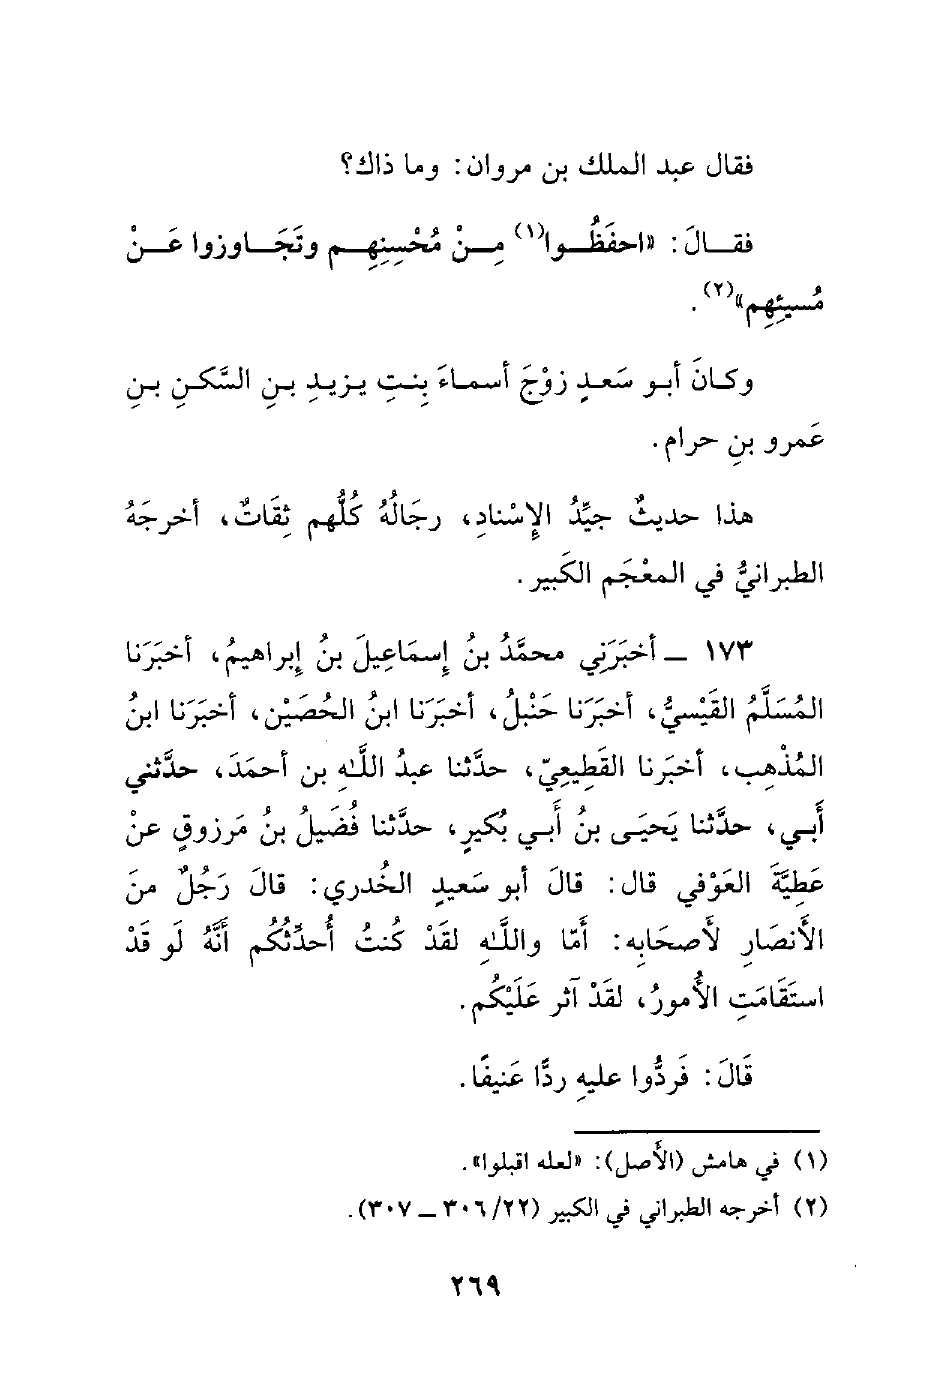 فقال عبد الملك بن مروان: وما ذاك؟
فقـالَ: «احفَظُـوا(١) مِـنْ مُحْسِنِهِـم وتَجَـاوزوا عَـنْ
مُسيئِهِم»(٢).
وكـانَ أبـو سَعـدٍ زوْجَ أسمـاءَ بِنـتِ يـزيـدِ بـنِ السَّكـنِ بـنِ
عَمرو بنِ حرام.
هذا حديثٌ جيِّدُ الإِسْنادِ، رجَالُهُ كُلُّهم ثِقَاتٌ، أخرجَهُ
الطبرانيُّ في المعْجَم الكَبير.
١٧٣ ــ أخبَرَنِي محمَّدُ بنُ إِسمَاعِيلَ بنُ إِبراهيمُ، أخبَرَنا
المُسَلَّمُ القَيْسيُّ، أخبَرَنا حَنْبلُ، أخبَرَنا ابنُ الحُصَيْن، أخبَرَنا ابنُ
المُذْهِب، أخبَرنا القَطِيعِيّ، حدَّثنا عبدُ اللَّهِ بن أحمَدَ، حدَّثني
أَبـي، حدَّثنا يَحيَـى بنُ أَبـي بُكيرٍ، حدَّثنا فُضَيلُ بنُ مَرزوقٍ عنْ
عَطِيَّةَ العَوْفي قال: قالَ أبو سَعيدٍ الخُدري: قالَ رَجُلٌ منَ
الأَنصَارِ لأَصحَابِه: أَمّا واللَّهِ لقَدْ كُنتُ أُحدِّثُكُم أَنَّهُ لَو قَدْ
استَقَامَتِ الأُمورُ، لقَدْ آثر عَلَيْكُم.
قَالَ: فَردُّوا عليهِ ردًّا عَنيفًا.
(١) في هامش (الأَصل): «لعله اقبلوا».
(٢) أخرجه الطبراني في الكبير (٢٢/ ٣٠٦ ــ ٣٠٧).
٢٦٩